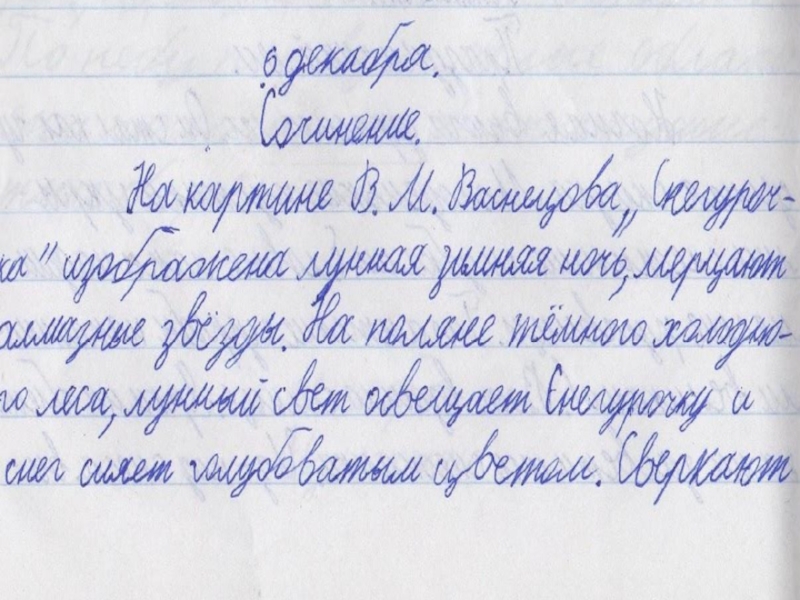 6 декабря.
Сочинение.
На картине В. М. Васнецова „Снегуроч-
ка" изображена лунная зимняя ночь, мерцают
алмазные звёзды. На поляне тёмного холодно-
го леса, лунный свет освещает Снегурочку и
снег сияет голубоватым цветом. Сверкают